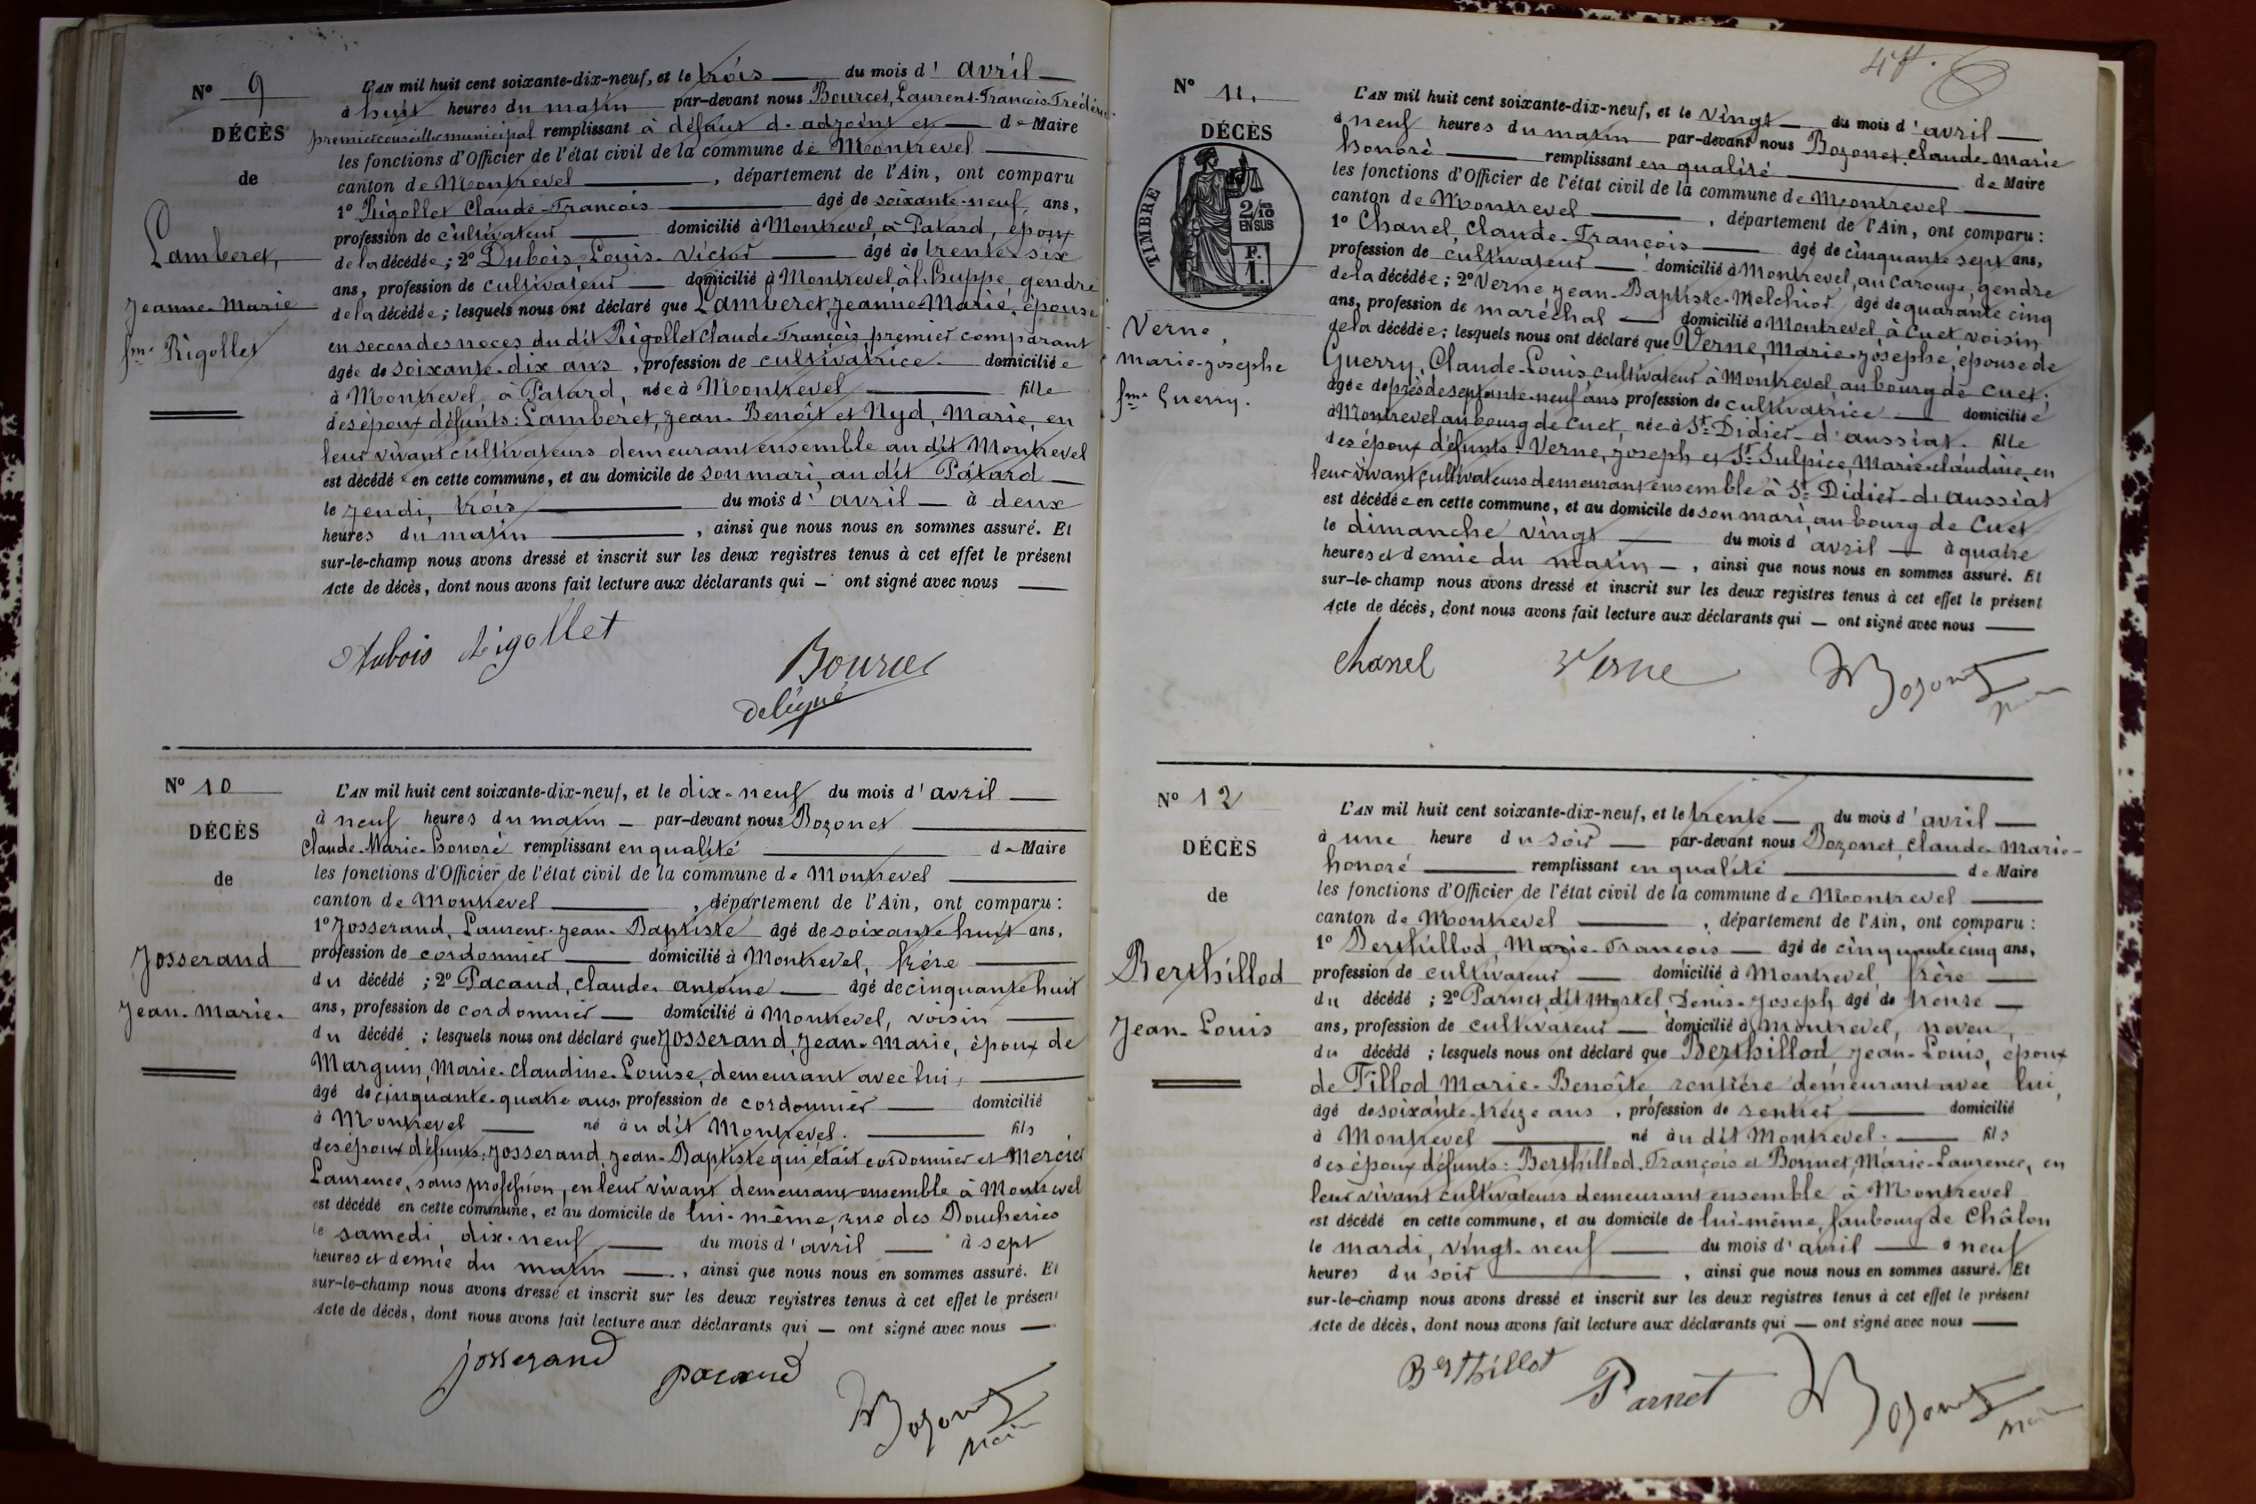 Nº 9
DÉCÈS
de
Lamberet,
Jeanne-Marie
fme Rigollet
L'AN mil huit cent soixante-dix-neuf, et le trois du mois d' avril
à huit heures du matin par-devant nous Bourcet, Laurent-François-Frédéric
premier conseiller municipal remplissant à défaut d'adjoint et de Maire
les fonctions d'Officier de l'état civil de la commune de Montrevel
canton de Montrevel , département de l'Ain, ont comparu
1º Rigollet Claude-François âgé de soixante-neuf ans,
profession de cultivateur domicilié à Montrevel, à Patard, époux
de la décédée ; 2º Dubois, Louis-Victor âgé de trente-six
ans, profession de cultivateur domicilié à Montrevel, à l. Huppe, gendre
de la décédée ; lesquels nous ont déclaré que Lamberet, Jeanne-Marie, épouse
en secondes noces du dit Rigollet Claude-François premier comparant
âgée de soixante-dix ans , profession de cultivatrice domiciliée
à Montrevel, à Patard, née à Montrevel fille
des époux défunts : Lamberet, Jean-Benoît et Nyd, Marie, en
leur vivant cultivateurs demeurant ensemble au dit Montrevel
est décédée en cette commune, et au domicile de son mari, au dit Patard
le jeudi, trois du mois d' avril à deux
heures du matin , ainsi que nous nous en sommes assuré. Et
sur-le-champ nous avons dressé et inscrit sur les deux registres tenus à cet effet le présent
Acte de décès, dont nous avons fait lecture aux déclarants qui — ont signé avec nous
Dubois Rigollet
Bourcet
délégué
Nº 10
DÉCÈS
de
Josserand
Jean-Marie.
L'AN mil huit cent soixante-dix-neuf, et le dix-neuf du mois d' avril
à neuf heures du matin par-devant nous Bozonet
Claude-Marie-Honoré remplissant en qualité de Maire
les fonctions d'Officier de l'état civil de la commune de Montrevel
canton de Montrevel , département de l'Ain, ont comparu :
1º Josserand, Laurent-Jean-Baptiste âgé de soixante-huit ans,
profession de cordonnier domicilié à Montrevel, frère
du décédé ; 2º Pacaud, Claude-Antoine âgé de cinquante huit
ans, profession de cordonnier domicilié à Montrevel, voisin
du décédé ; lesquels nous ont déclaré que Josserand, Jean-Marie, époux de
Marguin, Marie-Claudine-Louise, demeurant avec lui,
âgé de cinquante-quatre ans, profession de cordonnier domicilié
à Montrevel né au dit Montrevel. fils
des époux défunts : Josserand Jean-Baptiste qui était cordonnier et Mercier
Laurence, sans profession, en leur vivant demeurant ensemble à Montrevel
est décédé en cette commune, et au domicile de lui-même, rue des Boucheries
le samedi, dix-neuf du mois d' avril à sept
heures et demie du matin , ainsi que nous nous en sommes assuré. Et
sur-le-champ nous avons dressé et inscrit sur les deux registres tenus à cet effet le présent
Acte de décès, dont nous avons fait lecture aux déclarants qui — ont signé avec nous —
josserand
pacaud
Bozonet
Maire
Nº 11.
DÉCÈS
TIMBRE
2/10
EN SUS
F.
1.
Verne,
Marie-Josephe
fme Guerry.
L'AN mil huit cent soixante-dix-neuf, et le vingt du mois d' avril
à neuf heures du matin par-devant nous Bozonet, Claude-Marie
honoré remplissant en qualité de Maire
les fonctions d'Officier de l'état civil de la commune de Montrevel
canton de Montrevel , département de l'Ain, ont comparu :
1º Chanel, Claude-François âgé de cinquante sept ans,
profession de cultivateur domicilié à Montrevel, au Carouge, gendre
de la décédée ; 2º Verne Jean-Baptiste-Melchior âgé de quarante cinq
ans, profession de maréchal domicilié à Montrevel, à Cuet, voisin
de la décédée ; lesquels nous ont déclaré que Verne, Marie-Josephe, épouse de
Guerry, Claude-Louis cultivateur à Montrevel, au bourg de Cuet,
âgée de près de septante-neuf ans profession de cultivatrice domiciliée
à Montrevel au bourg de Cuet, née à St-Didier-d'aussiat. fille
des époux défunts : Verne, Joseph et St-Sulpice, Marie-Claudine, en
leur vivant cultivateurs demeurant ensemble à St-Didier-d'aussiat
est décédée en cette commune, et au domicile de son mari, au bourg de Cuet
le dimanche vingt du mois d' avril à quatre
heures et demie du matin , ainsi que nous nous en sommes assuré. Et
sur-le-champ nous avons dressé et inscrit sur les deux registres tenus à cet effet le présent
Acte de décès, dont nous avons fait lecture aux déclarants qui — ont signé avec nous
Chanel Verne Bozonet
Maire
Nº 12
DÉCÈS
de
Berthillod
Jean-Louis
L'AN mil huit cent soixante-dix-neuf, et le trente du mois d' avril
à une heure du soir par-devant nous Bozonet, Claude-Marie-
honoré remplissant en qualité de Maire
les fonctions d'Officier de l'état civil de la commune de Montrevel
canton de Montrevel , département de l'Ain, ont comparu :
1º Berthillod, Marie-François âgé de cinquante cinq ans,
profession de cultivateur domicilié à Montrevel, frère
du décédé ; 2º Parnet dit Martel Denis-Joseph, âgé de trente
ans, profession de cultivateur domicilié à Montrevel, neveu,
du décédé ; lesquels nous ont déclaré que Berthillod Jean-Louis, époux
de Tillod Marie-Benoîte rentière demeurant avec lui,
âgé de soixante-treize ans , profession de rentier domicilié
à Montrevel né au dit Montrevel. fils
des époux défunts : Berthillod, François et Bonnet, Marie-Laurence, en
leur vivant cultivateurs demeurant ensemble à Montrevel
est décédé en cette commune, et au domicile de lui-même, faubourg de Châlon
le mardi, vingt-neuf du mois d' avril à neuf
heures du soir , ainsi que nous nous en sommes assuré. Et
sur-le-champ nous avons dressé et inscrit sur les deux registres tenus à cet effet le présent
Acte de décès, dont nous avons fait lecture aux déclarants qui — ont signé avec nous
Berthillot
Parnet
Bozonet
Maire